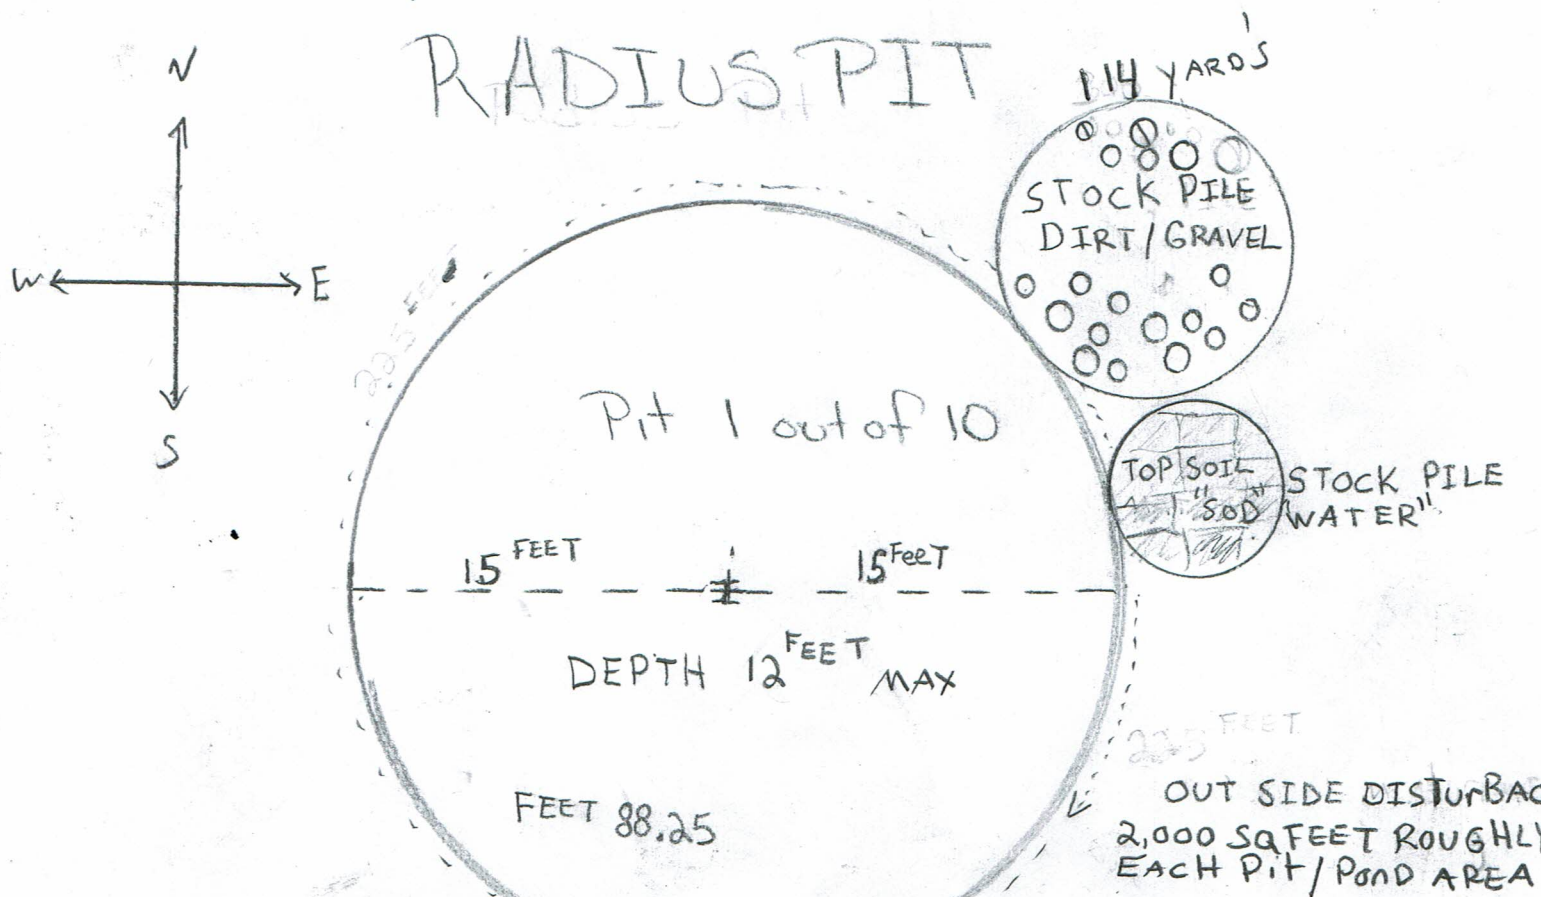 RADIUS PIT
N
W
E
S
114 YARD'S
STOCK PILE
DIRT/GRAVEL
Pit 1 out of 10
TOP SOIL
"SOD"
STOCK PILE
WATER"
15 FEET
15 FeeT
DEPTH 12 FEET MAX
FEET 88.25
FEET
OUT SIDE DISTurBAC
2,000 SQ FEET ROUGHLY
EACH Pit/PonD AREA